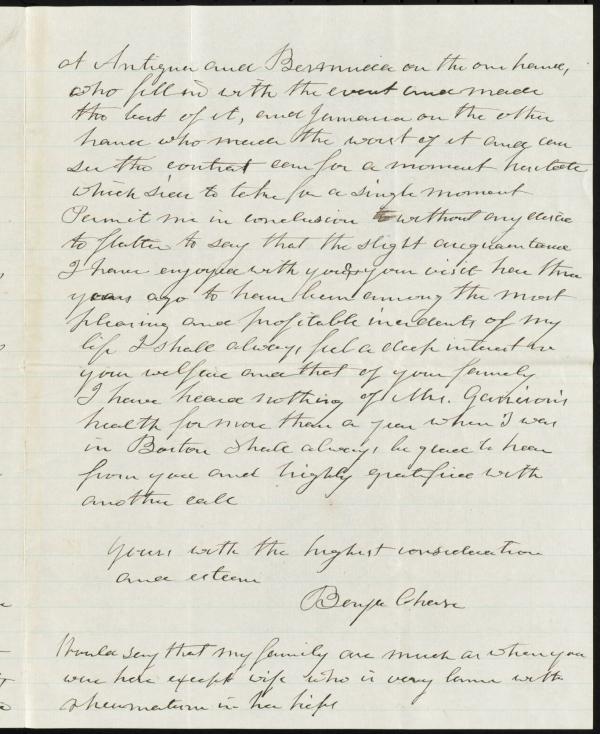 at Antigua and Bermuda on the one hand,
who fell in with the event and made
the best of it, and Jamaica on the other
hand who made the worst of it and can
see the contrast can for a moment hesitate
which side to take for a single moment
Permit me in conclusion without any desire
to flatter to say that the slight acquaintance
I have enjoyed with you & your visit here three
years ago to have been among the most
pleasing and profitable incidents of my
life I shall always feel a deep interest in
your welfare and that of your family
I have heard nothing of Mrs. Garrison's
health for more than a year when I was
in Boston shall always be glad to hear
from you and highly gratified with
another call
Yours with the highest consideration
and esteem
Benja Chase
Would say that my family are much as when you
were here except wife who is very lame with
rheumatism in her hips